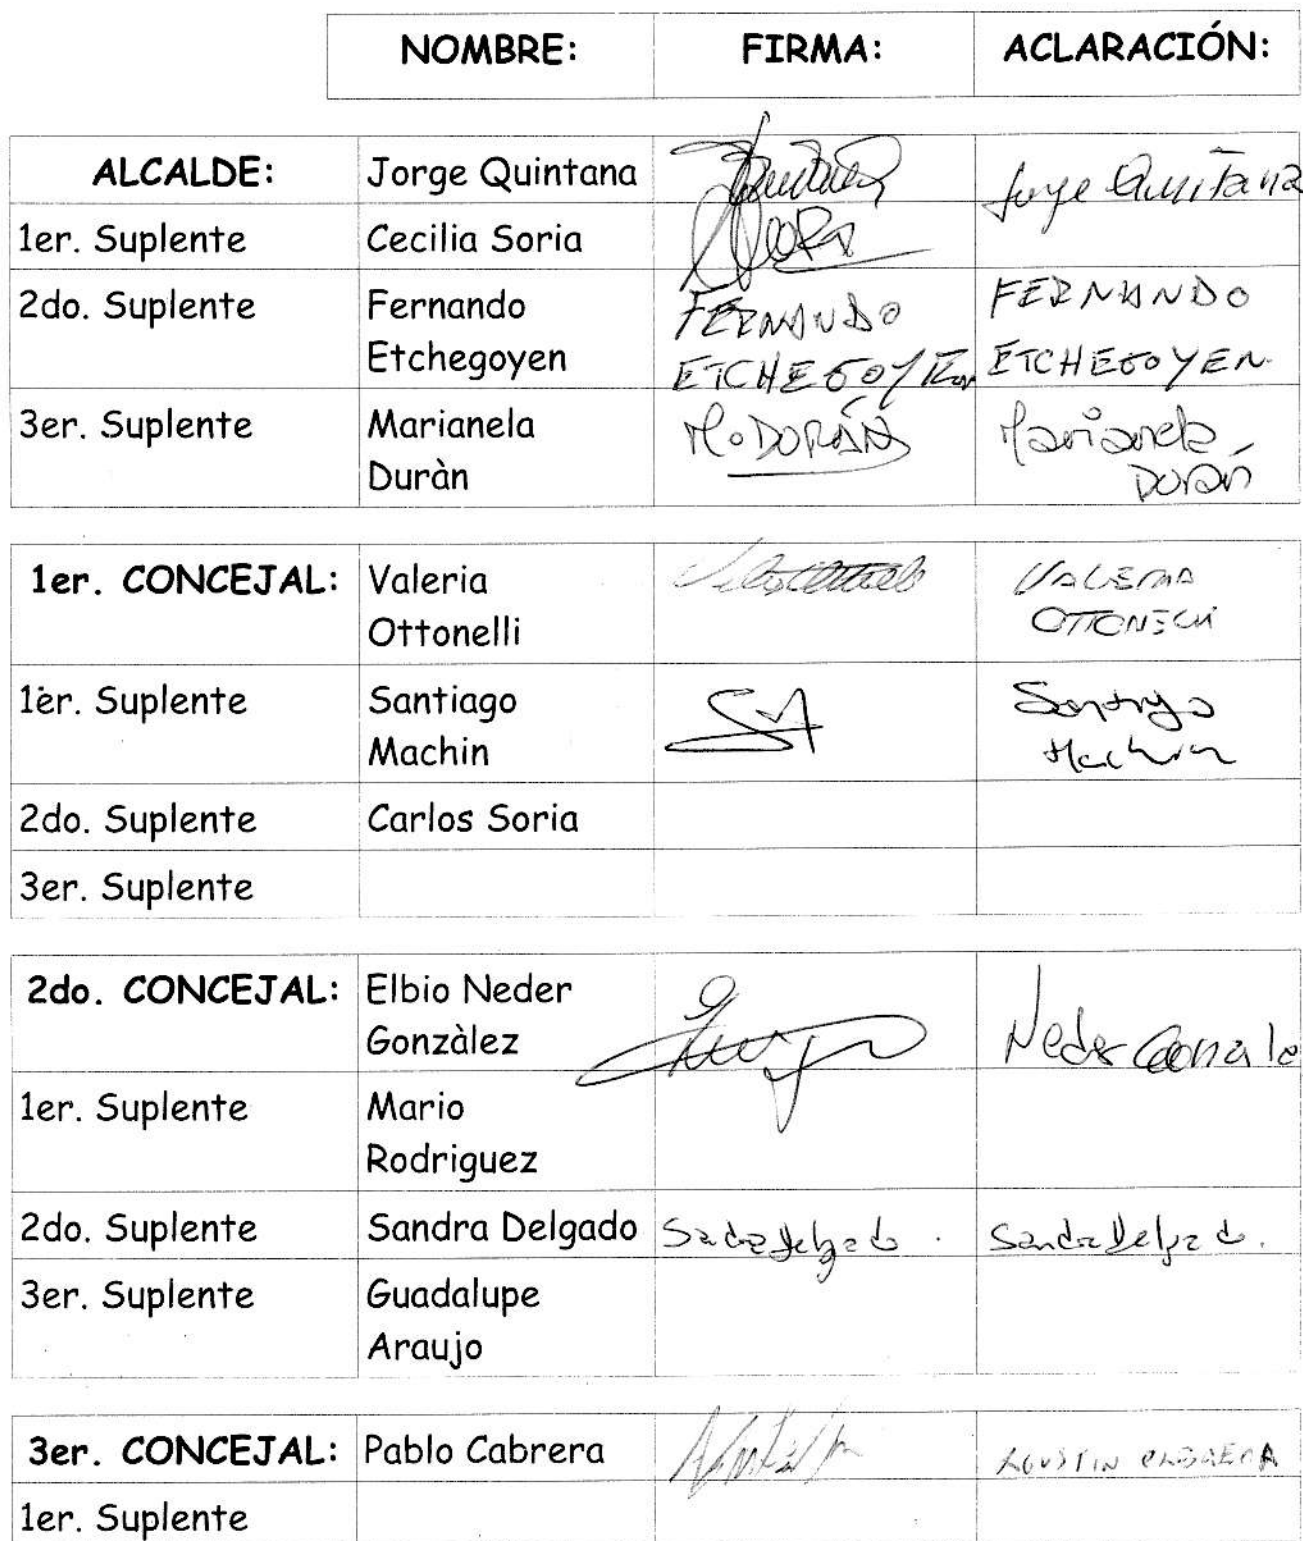 NOMBRE: FIRMA: ACLARACIÓN:
ALCALDE: Jorge Quintana Jorge Quintana
1er. Suplente Cecilia Soria
2do. Suplente Fernando FERNANDO FERNANDO
Etchegoyen ETCHEGOYEN ETCHEGOYEN
3er. Suplente Marianela M. DURÁN Marianela
Duràn Durán
1er. CONCEJAL: Valeria VALERIA
Ottonelli OTTONELLI
1er. Suplente Santiago Santiago
Machin Machin
2do. Suplente Carlos Soria
3er. Suplente
2do. CONCEJAL: Elbio Neder
Gonzàlez Neder Gonzale
1er. Suplente Mario
Rodriguez
2do. Suplente Sandra Delgado Sandra Delgado . Sandra Delgado.
3er. Suplente Guadalupe
Araujo
3er. CONCEJAL: Pablo Cabrera AGUSTIN CABRERA
1er. Suplente